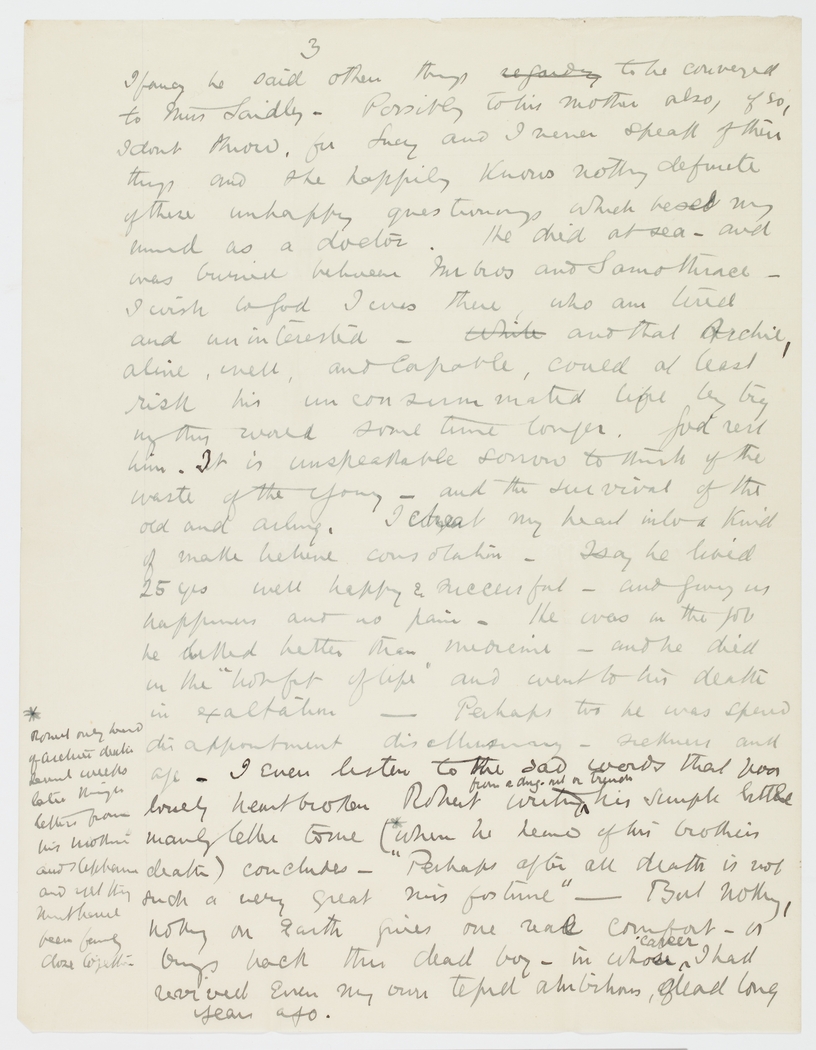 3
I fancy he said other things regarding to be conveyed
to Miss Laidley - Possibly to his mother also, if so,
I dont know, for Lucy and I never speak of these
things and she happily knows nothing definite
of these unhappy questionings which beset my
mind as a doctor. He died at sea - and
was buried between Imbros and Samothrace -
I wish to God I was there, who am tired
and uninterested - while and that Archie,
alive, well, and capable, could at least
risk his unconsummated life by try
ing this world some time longer. God rest
him. It is unspeakable sorrow to think of the
waste of the young - and the survival of the
old and ailing. I cheat my heart into a kind
of make believe consolation - I say he lived
25 yrs well happy & successful - and giving us
happiness and no pain - He was in the job
he liked better than medicine - and he died
in the "hotfit of life" and went to his death
in exaltation — Perhaps too he was spared
disappointment disillusioning - sickness and
age - I even listen to the sad words that poor
from a dug-out or trench
lonely heartbroken Robert writing his simple little
manly letter to me (*when he heard of his brothers
death) concludes - "Perhaps after all death is not
such a very great misfortune" — But nothing,
nothing on Earth gives one real comfort - or
brings back this dead boy - in whose career I had
revived even my own tepid ambitions, dead long
years ago.
*
Robert only heard
of Archies death
several weeks
later through
letters from
his mother
and
and yet they
must have
been fairly
close together -